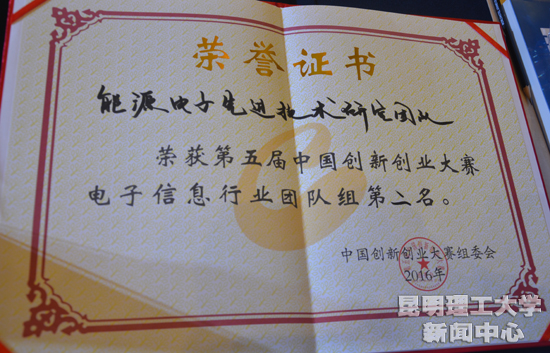 荣誉证书
能源电子先进技术研究团队
荣获第五届中国创新创业大赛
电子信息行业团队组第二名。
中国创新创业大赛组委会
2016年
昆明理工大学
新闻中心